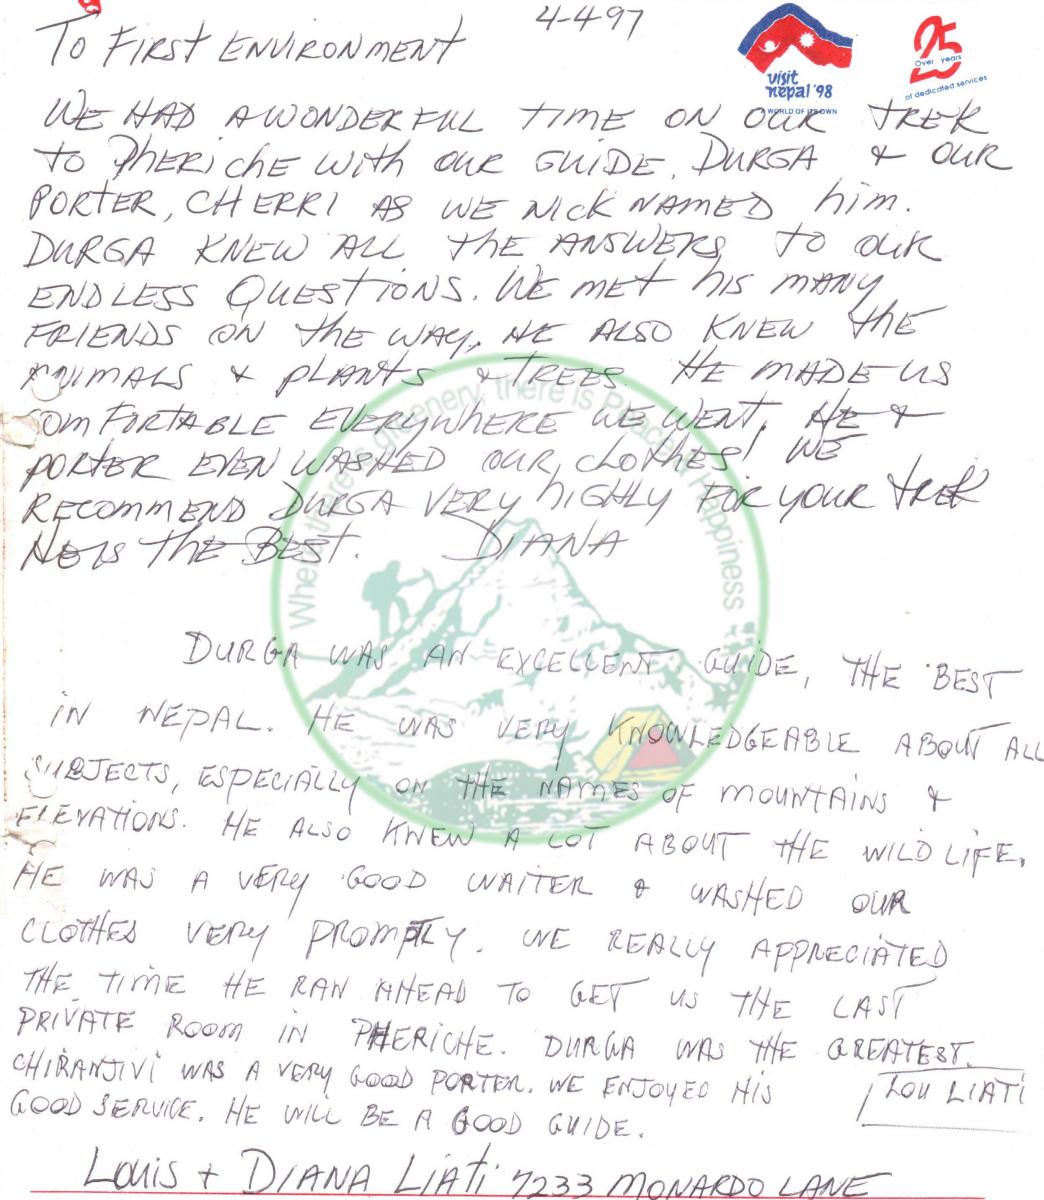 To First Environment 4-4-97
visit nepal '98
A WORLD OF ITS OWN
25
Over years
of dedicated services
WE HAD A WONDERFUL TIME ON OUR TREK
TO PHERICHE WITH OUR GUIDE, DURGA & OUR
PORTER, CHERRI AS WE NICKNAMED him.
DURGA KNEW ALL the ANSWERS TO OUR
ENDLESS QUESTIONS. WE MET his MANY
FRIENDS ON the WAY. HE ALSO KNEW the
ANIMALS & plants & TREES. HE MADE US
COMFORTABLE EVERYWHERE WE WENT. HE &
PORTER EVEN WASHED OUR clothes! WE
RECOMMEND DURGA VERY highly FOR YOUR TREK
HE is the BEST. DIANA
Where there is greenery, there is Peace & Happiness
DURGA WAS AN EXCELLENT GUIDE, THE BEST
IN NEPAL. HE WAS VERY KNOWLEDGEABLE ABOUT ALL
SUBJECTS, ESPECIALLY ON THE NAMES OF MOUNTAINS &
ELEVATIONS. HE ALSO KNEW A LOT ABOUT THE WILD LIFE.
HE WAS A VERY GOOD WAITER & WASHED OUR
CLOTHES VERY PROMPTLY. WE REALLY APPRECIATED
THE TIME HE RAN AHEAD TO GET US THE LAST
PRIVATE ROOM IN PHERICHE. DURGA WAS THE GREATEST.
CHIRANJIVI WAS A VERY GOOD PORTER. WE ENJOYED HIS
LOU LIATI
GOOD SERVICE. HE WILL BE A GOOD GUIDE.
Louis & DIANA LIATI 7233 MONARDO LANE